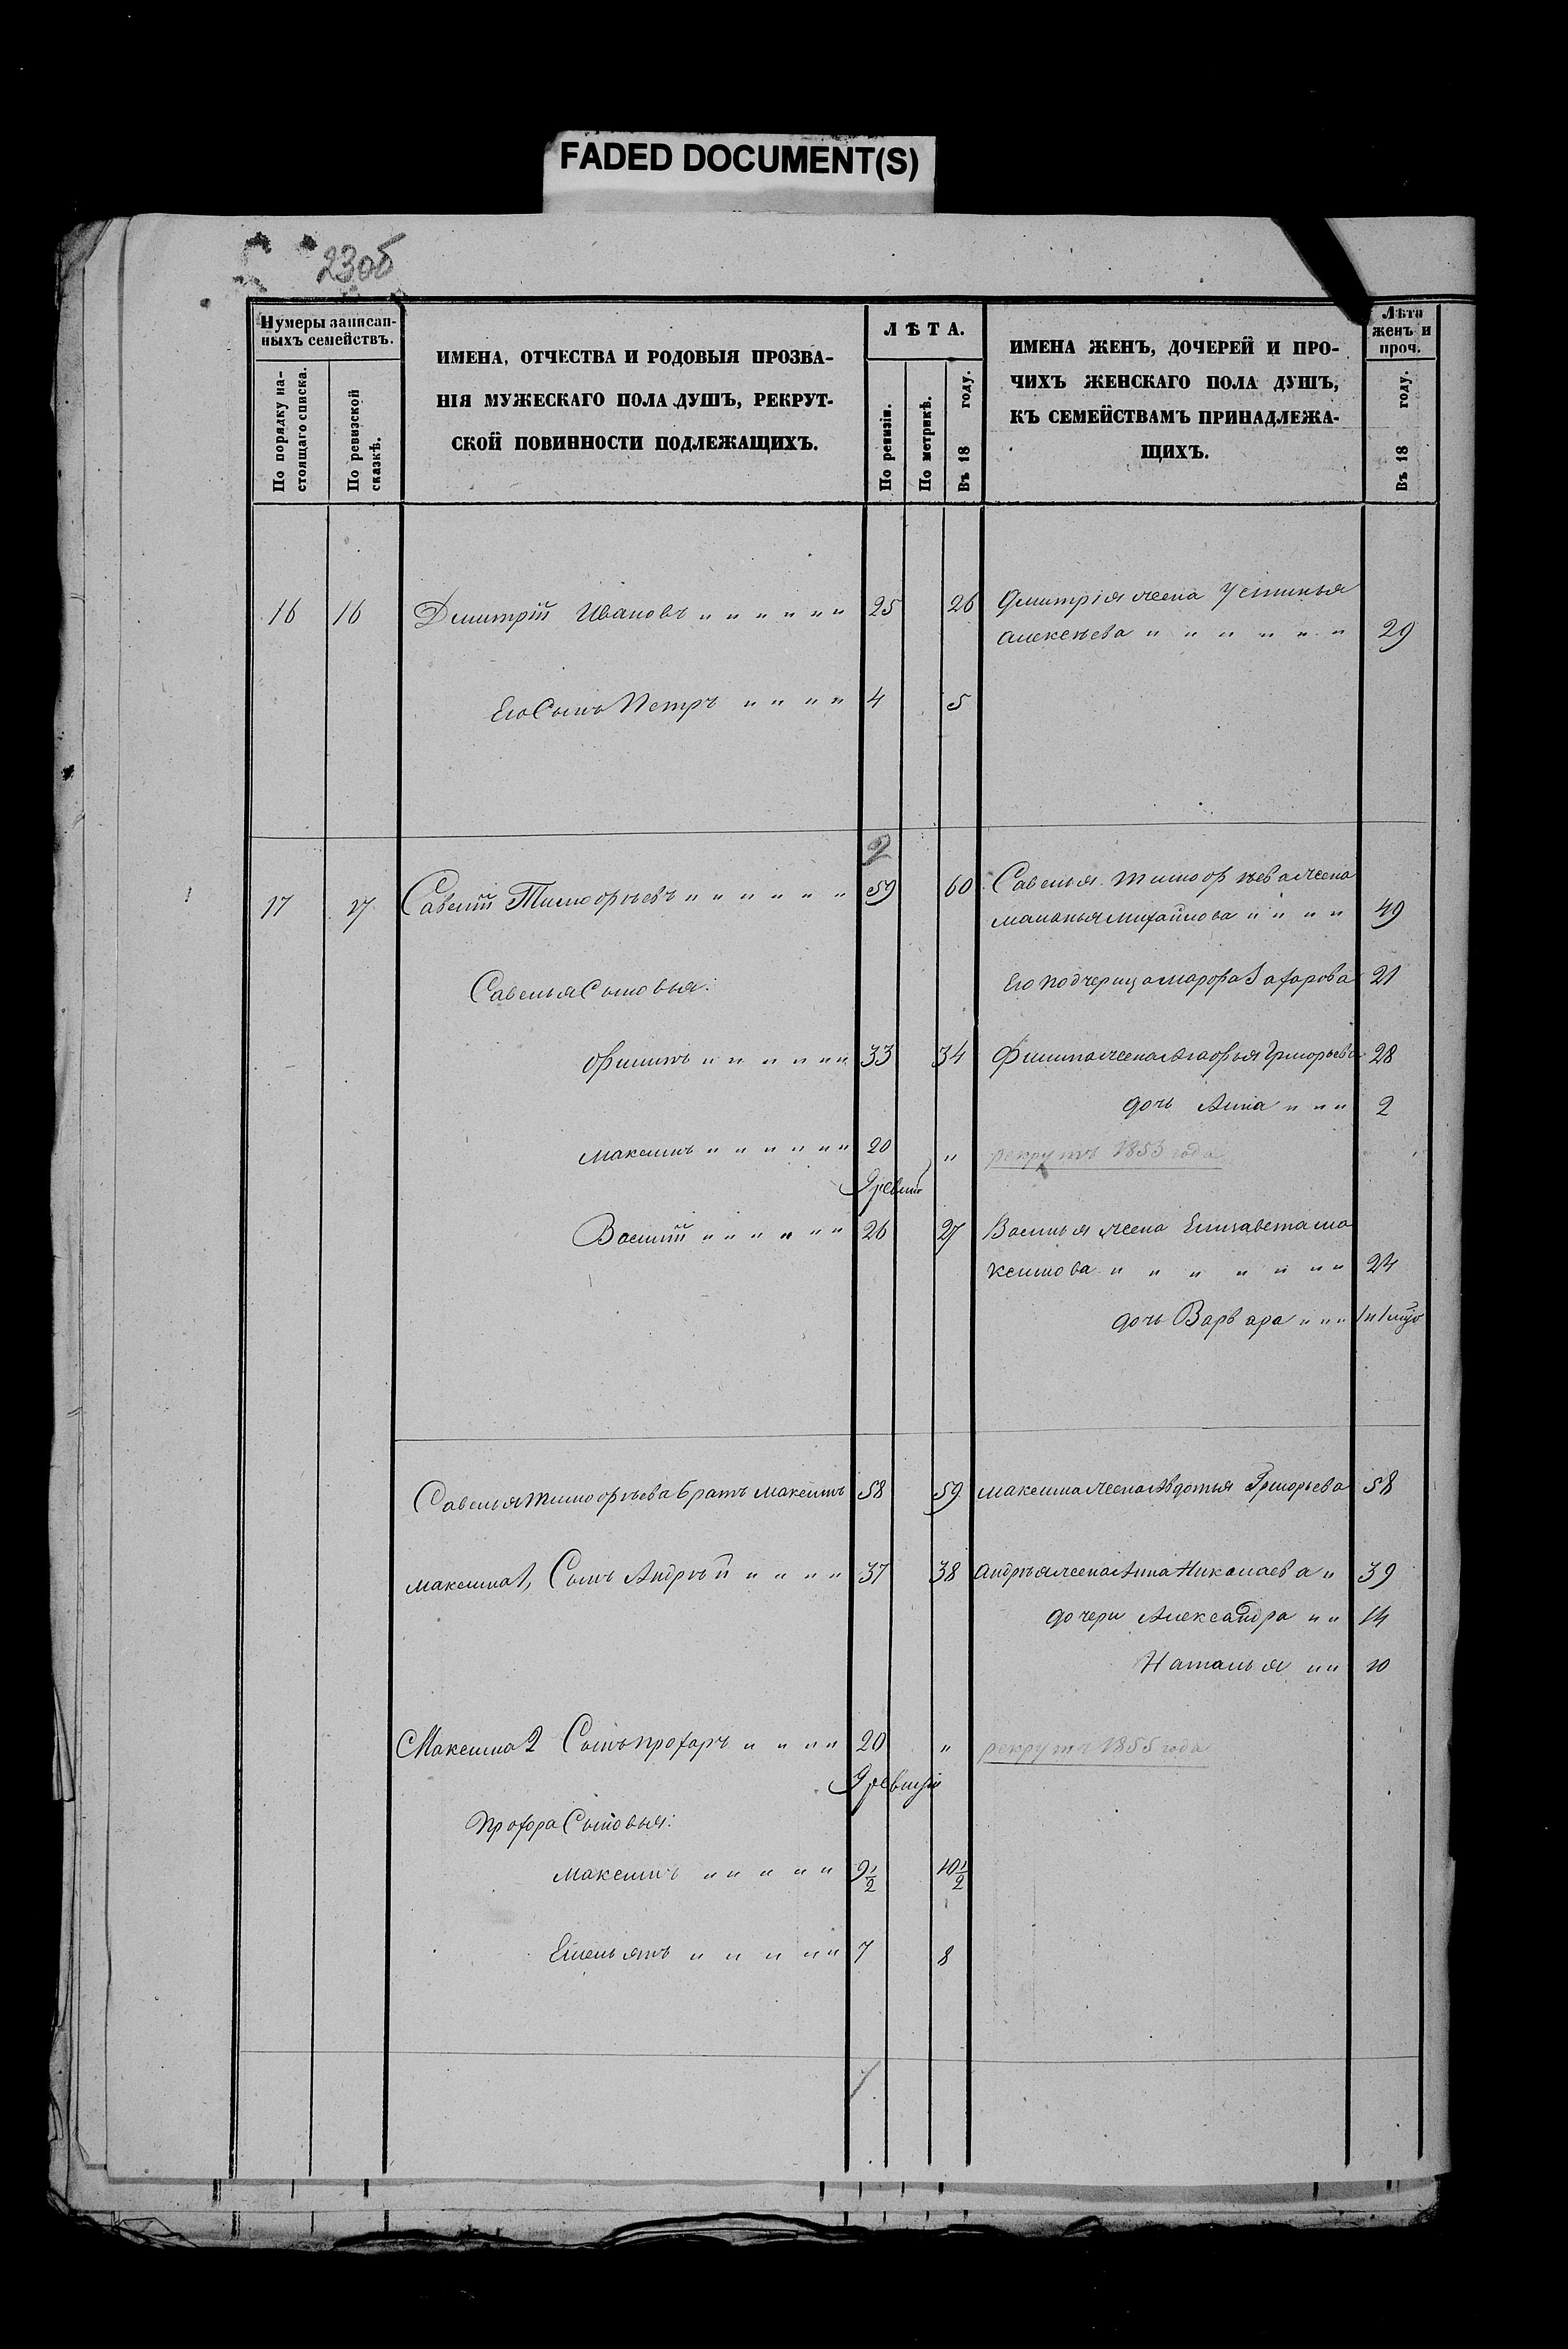 FADED DOCUMENT(S)
23об
Нумеры записан-
ныхъ семействъ.
По порядку на-
стоящаго списка.
По ревизской
сказкѣ.
ИМЕНА, ОТЧЕСТВА И РОДОВЫЯ ПРОЗВА-
НІЯ МУЖЕСКАГО ПОЛА ДУШЪ, РЕКРУТ-
СКОЙ ПОВИННОСТИ ПОДЛЕЖАЩИХЪ.
ЛѢТА.
По ревизіи.
По метрикѣ.
Въ 18 году.
ИМЕНА ЖЕНЪ, ДОЧЕРЕЙ И ПРО-
ЧИХЪ ЖЕНСКАГО ПОЛА ДУШЪ,
КЪ СЕМЕЙСТВАМЪ ПРИНАДЛЕЖА-
ЩИХЪ.
Лѣта
женъ и
проч.
Въ 18 году.
16 16 Дмитрій Ивановъ " " " " " " 25 26 Дмитрія жена Устинья
Алексѣева " " " " " " " 29
Его Сынъ Петръ " " " " 4 5
2
17 17 Савелій Тимофѣевъ " " " " " " 59 60 Савелья Тимофѣева жена
Маланья Михайлова " " " " 49
Савелья Сыновья: Его подчерица Марфа Захарова 21
Филипъ " " " " " " 33 34 Филипа жена Агафья Григорьева 28
дочь Анна " " " 2
Максимъ " " " " " " 20 " рекрутъ 1853 года
Василій " " " " " " 26 27 Василья жена Елизавета Ма
ксимова " " " " " " " 24
дочь Варвара " " "
Савелья Тимофѣева братъ Максимъ 58 59 Максима жена Авдотья Григорьева 58
Максима 1, Сынъ Андрѣй " " " " 37 38 Андрѣя жена Анна Николаева " 39
дочери Александра " " 14
Наталья " " 10
Максима 2 Сынъ Прохоръ " " " " 20 " рекрутъ 1855 года
Прохора Сыновья:
Максимъ " " " " " 9½ 10½
Емельянъ " " " " " " 7 8